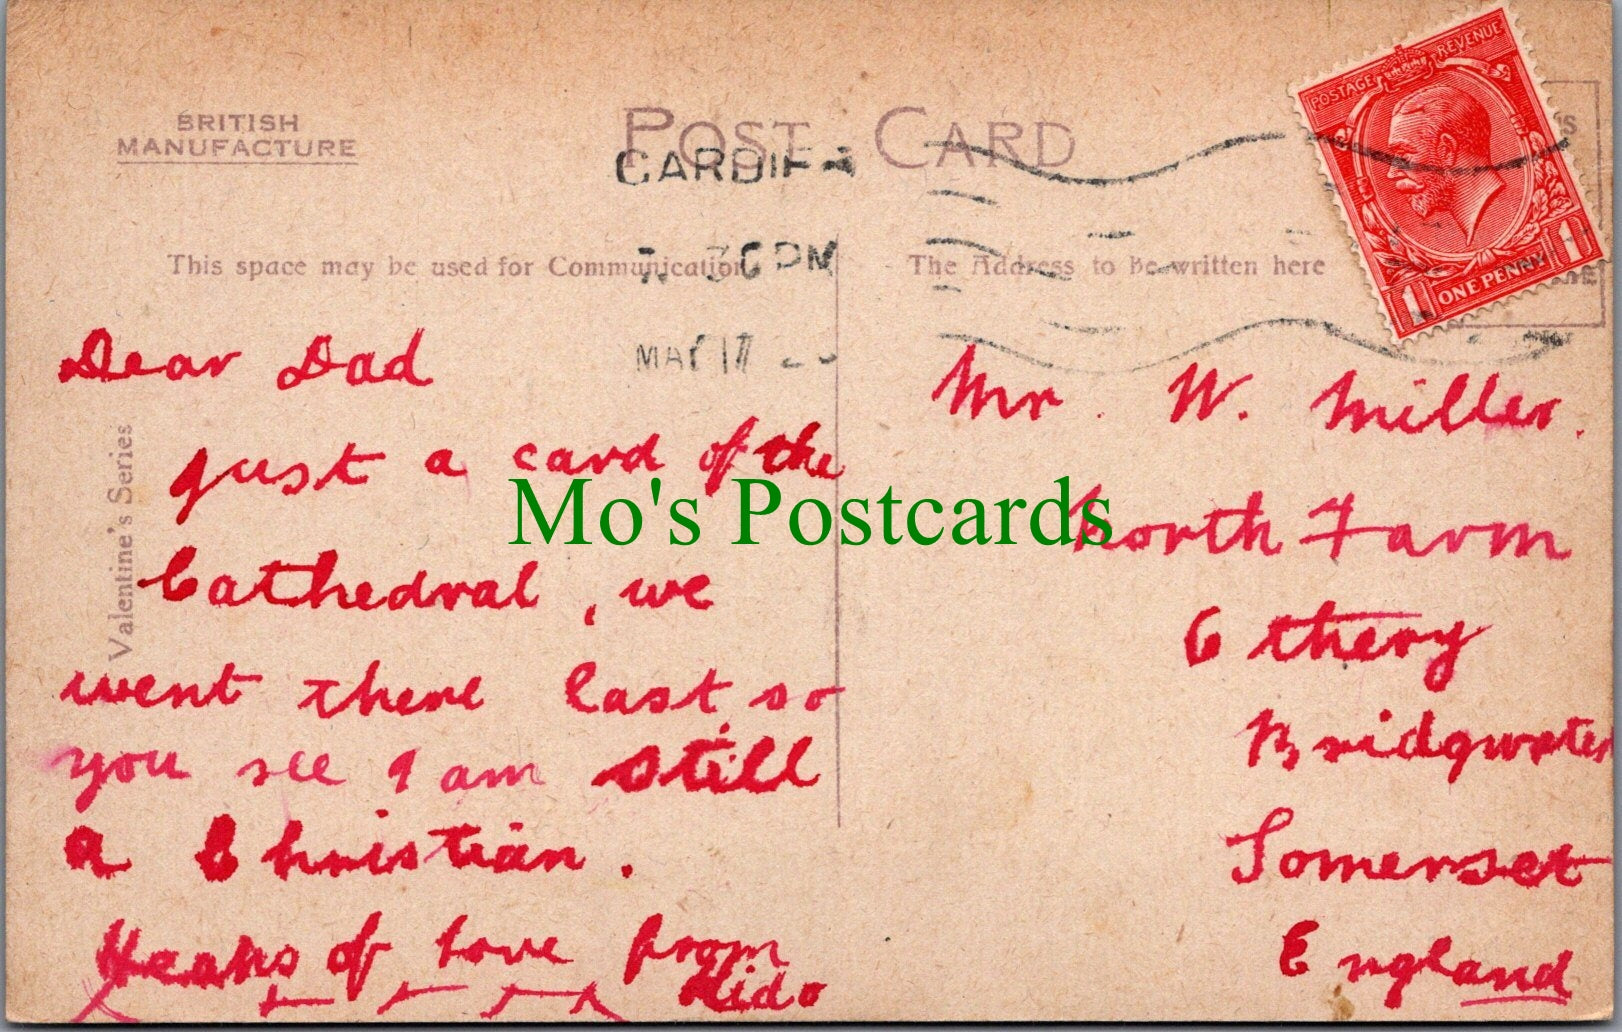 BRITISH
MANUFACTURE
POST CARD
CARDIFF
30 PM
MAR 17
POSTAGE REVENUE
1 ONE PENNY 1
This space may be used for Communication
The Address to be written here
Valentine's Series
Dear Dad
just a card of the
Cathedral, we
went there last, so
you see I am still
a Christian.
Heaps of love from
Mr. W. Miller.
North Farm
Othery
Bridgwater
Somerset
England
Mo's Postcards